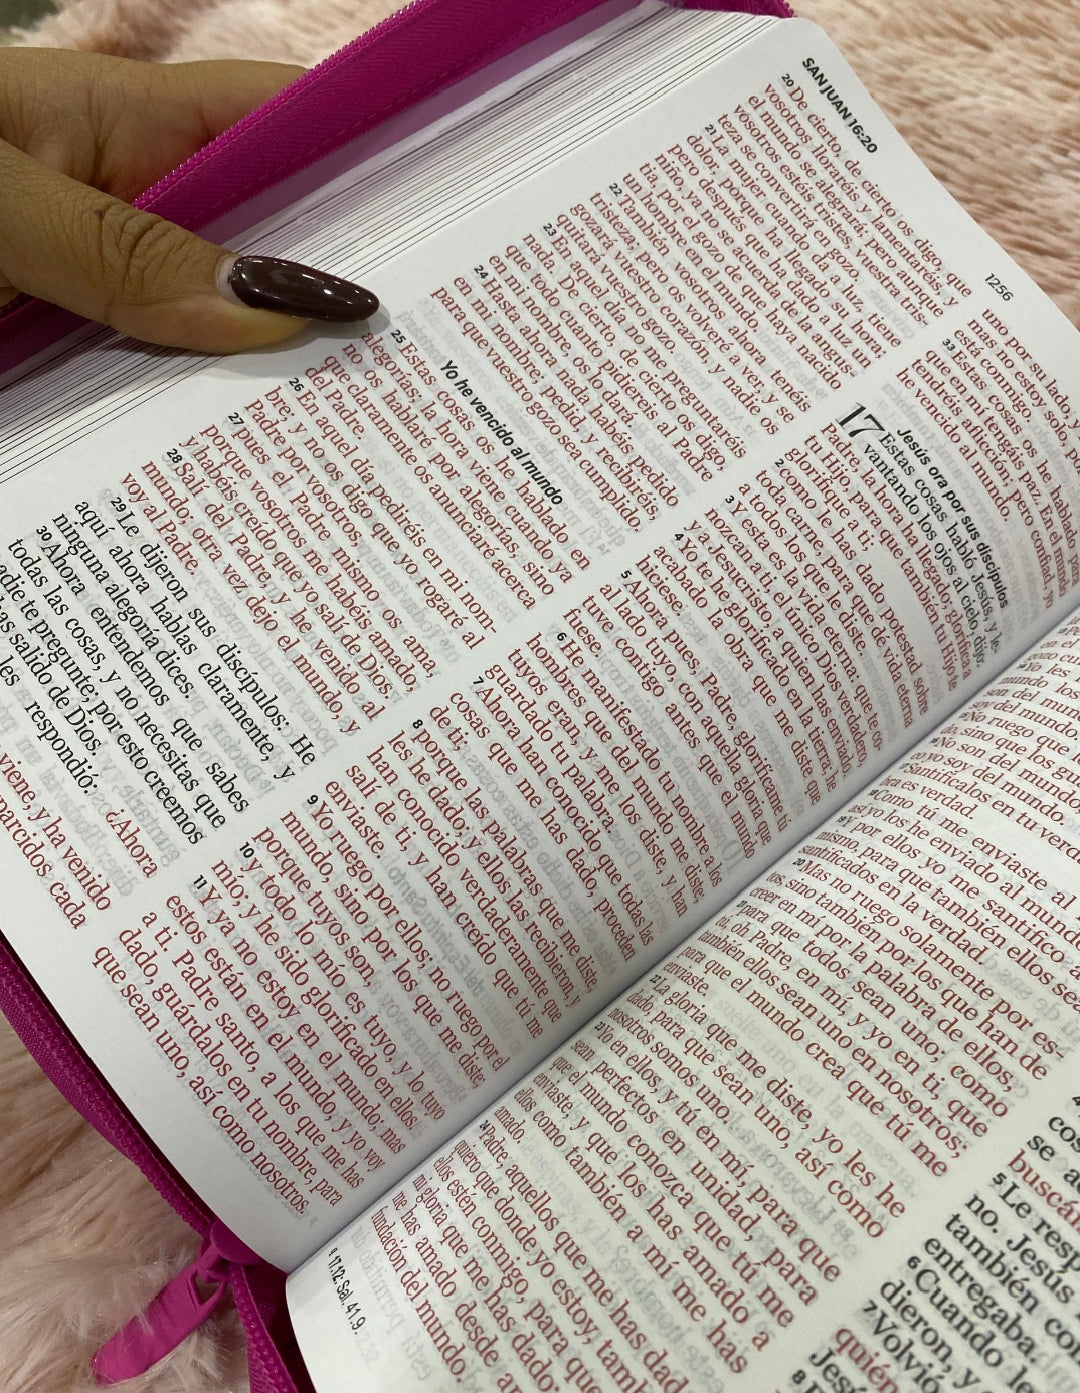 SAN JUAN 16:20
1256
20 De cierto, de cierto os digo, que
vosotros lloraréis y lamentaréis, y
el mundo se alegrará; pero aunque
vosotros estéis tristes, vuestra tris-
teza se convertirá en gozo.
21 La mujer cuando da a luz, tiene
dolor, porque ha llegado su hora;
pero después que ha dado a luz un
niño, ya no se acuerda de la angus-
tia, por el gozo de que haya nacido
un hombre en el mundo.
22 También vosotros ahora tenéis
tristeza; pero os volveré a ver, y se
gozará vuestro corazón, y nadie os
quitará vuestro gozo.
23 En aquel día no me preguntaréis
nada. De cierto, de cierto os digo,
que todo cuanto pidiereis al Padre
en mi nombre, os lo dará.
24 Hasta ahora nada habéis pedido
en mi nombre; pedid, y recibiréis,
para que vuestro gozo sea cumplido.
Yo he vencido al mundo
25 Estas cosas os he hablado en
alegorías; la hora viene cuando ya
no os hablaré por alegorías, sino
que claramente os anunciaré acerca
del Padre.
26 En aquel día pediréis en mi nom-
bre; y no os digo que yo rogaré al
Padre por vosotros,
27 pues el Padre mismo os ama,
porque vosotros me habéis amado,
y habéis creído que yo salí de Dios.
28 Salí del Padre, y he venido al
mundo; otra vez dejo el mundo, y
voy al Padre.
29 Le dijeron sus discípulos: He
aquí ahora hablas claramente, y
ninguna alegoría dices.
30 Ahora entendemos que sabes
todas las cosas, y no necesitas que
adie te pregunte; por esto creemos
has salido de Dios.
les respondió: ¿Ahora
viene, y ha venido
parcidos cada
uno por su lado, y
mas no estoy solo,
está conmigo.
33 Estas cosas os he hablado para
que en mí tengáis paz. En el mundo
tendréis aflicción; pero confiad, yo
he vencido al mundo.
Jesús ora por sus discípulos
17 Estas cosas habló Jesús, y le-
vantando los ojos al cielo, dijo:
Padre, la hora ha llegado; glorifica a
tu Hijo, para que también tu Hijo te
glorifique a ti;
2 como le has dado potestad sobre
toda carne, para que dé vida eterna
a todos los que le diste.
3 Y esta es la vida eterna: que te co-
nozcan a ti, el único Dios verdadero,
y a Jesucristo, a quien has enviado.
4 Yo te he glorificado en la tierra; he
acabado la obra que me diste que
hiciese.
5 Ahora pues, Padre, glorifícame tú
al lado tuyo, con aquella gloria que
tuve contigo antes que el mundo
fuese.
6 He manifestado tu nombre a los
hombres que del mundo me diste;
tuyos eran, y me los diste, y han
guardado tu palabra.
7 Ahora han conocido que todas las
cosas que me has dado, proceden
de ti;
8 porque las palabras que me diste,
les he dado; y ellos las recibieron, y
han conocido verdaderamente que
salí de ti, y han creído que tú me
enviaste.
9 Yo ruego por ellos; no ruego por el
mundo, sino por los que me diste;
porque tuyos son,
10 y todo lo mío es tuyo, y lo tuyo
mío; y he sido glorificado en ellos.
11 Y ya no estoy en el mundo; mas
estos están en el mundo, y yo voy
a ti. Padre santo, a los que me has
dado, guárdalos en tu nombre, para
que sean uno, así como nosotros.
mundo los
son del mundo,
soy del mundo.
No ruego que
do, sino que los gu
No son del mundo,
co yo soy del mundo.
Santifícalos en tu verda
bra es verdad.
Como tú me enviaste al
así yo los he enviado al mundo
Y por ellos yo me santifico a
mismo, para que también ellos sea
santificados en la verdad.
20 Mas no ruego solamente por es-
tos, sino también por los que han de
creer en mí por la palabra de ellos,
21 para que todos sean uno; como
tú, oh Padre, en mí, y yo en ti, que
también ellos sean uno en nosotros;
para que el mundo crea que tú me
enviaste.
22 La gloria que me diste, yo les he
dado, para que sean uno, así como
nosotros somos uno.
23 Yo en ellos, y tú en mí, para que
sean perfectos en unidad, para
que el mundo conozca que tú me
enviaste, y que los has amado a
ellos como también a mí me has
amado.
24 Padre, aquellos que me has dado,
quiero que donde yo estoy, tamb
ellos estén conmigo, para que
mi gloria que me has dado;
me has amado desde an
fundación del mundo.
17.12: Sal. 41.9.
4
cos
se a
buscái
5 Le resp
no. Jesús
también co
entregaba.
6 Cuando le
dieron, y
7 Volvió
quién
Jesú
8